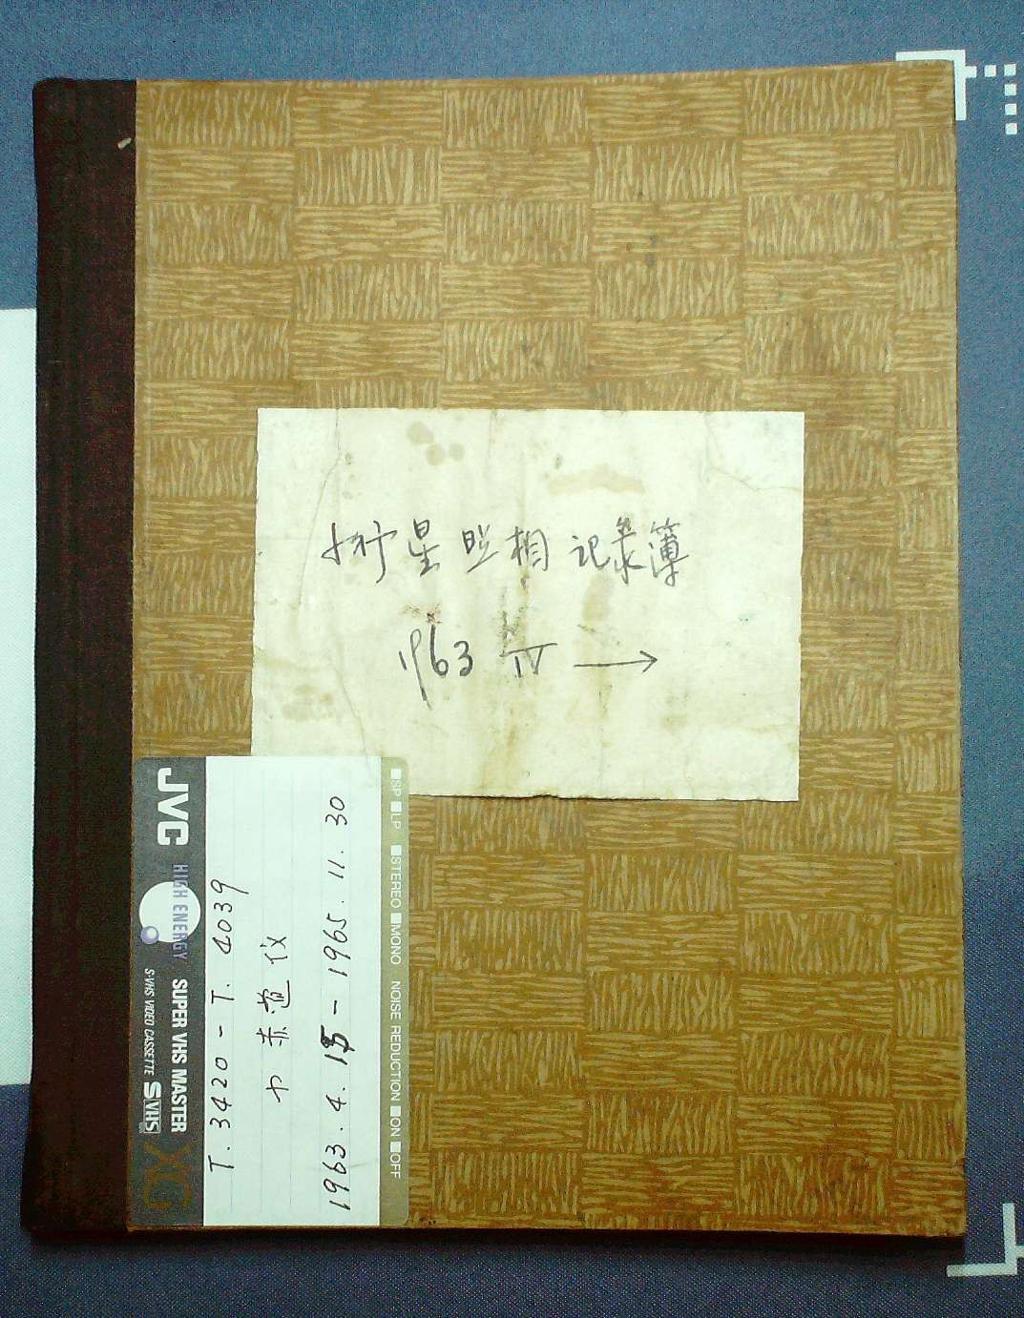 小行星照相记录簿
1963 IV →
T. 3420 - T. 4039
小赤道仪
1963. 4. 15 - 1965. 11. 30
JVC HIGH ENERGY SUPER VHS MASTER XG
S-VHS VIDEO CASSETTE SVHS
■SP ■LP ■STEREO ■MONO NOISE REDUCTION ■ON ■OFF